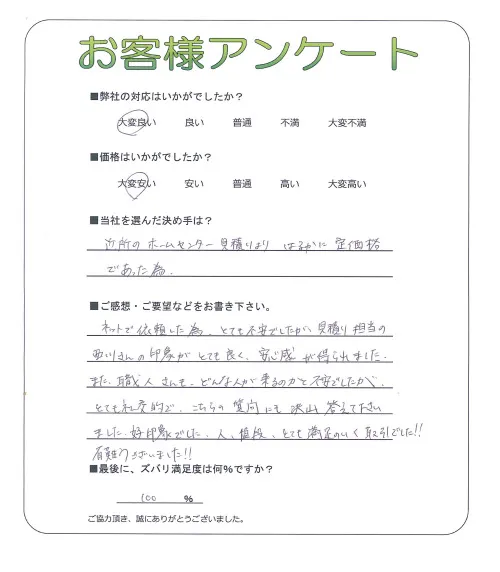 お客様アンケート
■弊社の対応はいかがでしたか？
大変良い 良い 普通 不満 大変不満
■価格はいかがでしたか？
大変安い 安い 普通 高い 大変高い
■当社を選んだ決め手は？
近所のホームセンター見積りより はるかに 定価格
であった為。
■ご感想・ご要望などをお書き下さい。
ネットで依頼した為、とても不安でしたが、見積り担当の
西川さんの印象がとても良く、安心感が得られました。
また、職人さんも、どんな人が来るのかと不安でしたが、
とても社交的で、こちらの質問にも沢山答えて下さい
ました。好印象でした。人、値段、とても満足のいく取引でした!!
有難うございました!!
■最後に、ズバリ満足度は何%ですか？
100 %
ご協力頂き、誠にありがとうございました。